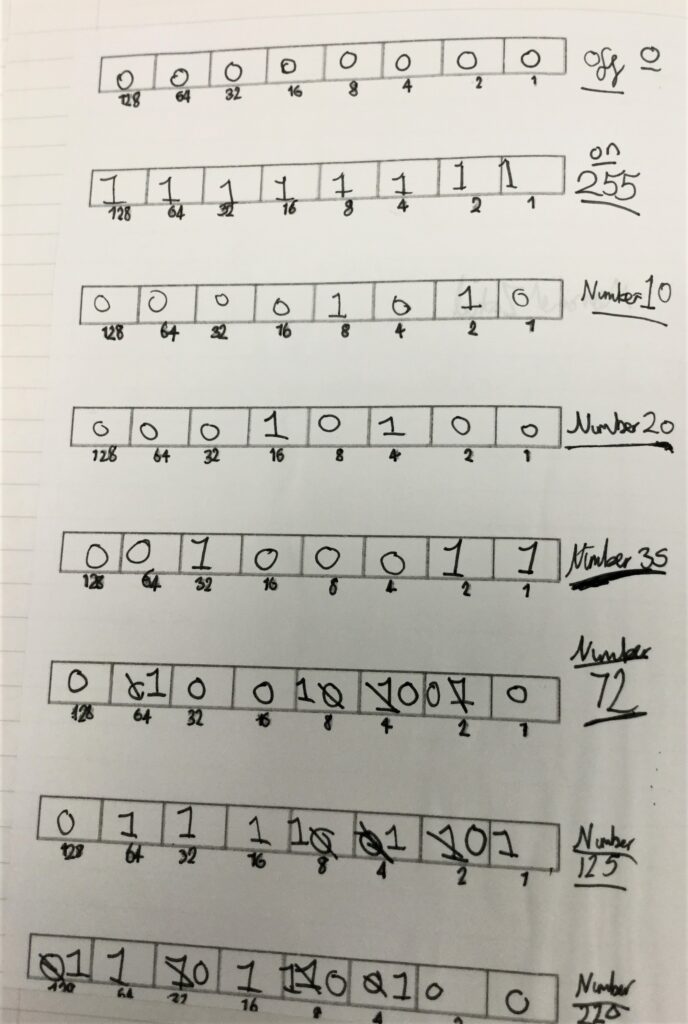 0 0 0 0 0 0 0 0 Off 0
128 64 32 16 8 4 2 1
on
1 1 1 1 1 1 1 1 255
128 64 32 16 8 4 2 1
0 0 0 0 1 0 1 0 Number 10
128 64 32 16 8 4 2 1
0 0 0 1 0 1 0 0 Number 20
128 64 32 16 8 4 2 1
0 0 1 0 0 0 1 1 Number 35
128 64 32 16 8 4 2 1
Number
0 1 0 0 1 0 0 0 72
128 64 32 16 8 4 2 1
0 1 1 1 1 1 0 1 Number
128 64 32 16 8 4 2 1 125
1 1 0 1 1 0 1 0 0 Number
64 16 4